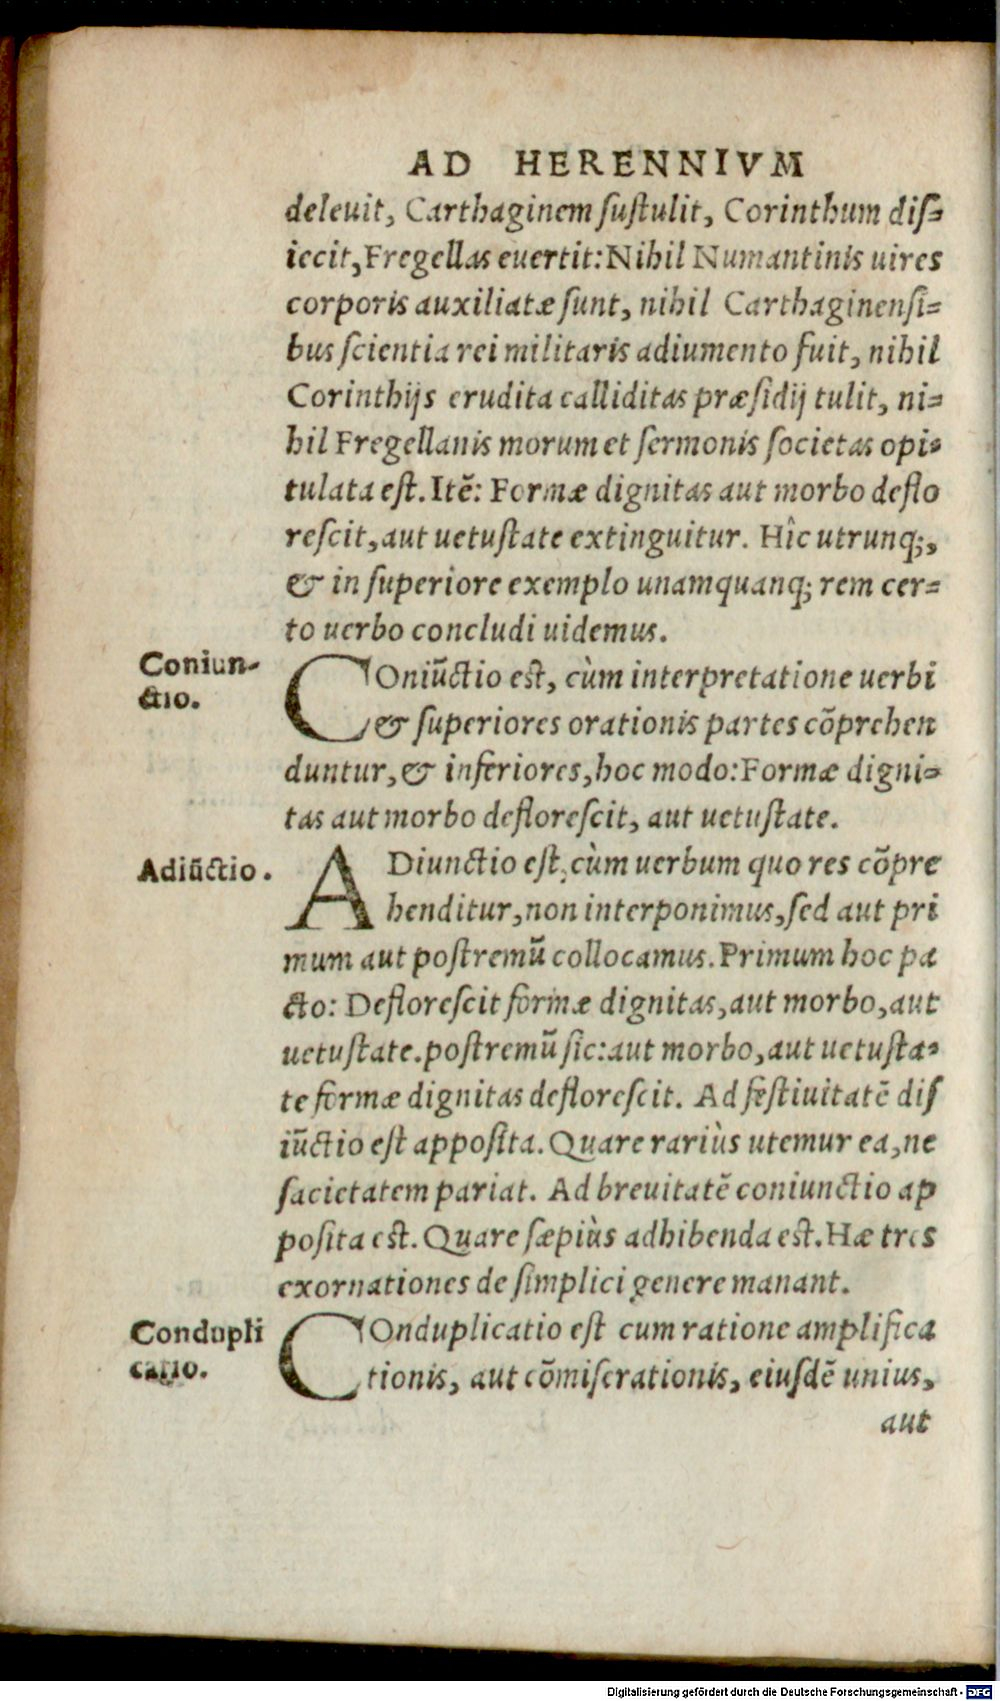 AD HERENNIVM
deleuit, Carthaginem ſuſtulit, Corinthum diſ-
iecit, Fregellas euertit: Nihil Numantinis uires
corporis auxiliatæ ſunt, nihil Carthaginenſi-
bus ſcientia rei militaris adiumento fuit, nihil
Corinthijs erudita calliditas præſidij tulit, ni-
hil Fregellanis morum et ſermonis ſocietas opi-
tulata eſt. Itē: Formæ dignitas aut morbo deflo
reſcit, aut uetuſtate extinguitur. Hîc utrunq;,
& in ſuperiore exemplo unamquanq; rem cer-
to uerbo concludi uidemus.
Coniun-
ctio.
COniūctio eſt, cùm interpretatione uerbi
& ſuperiores orationis partes cōprehen
duntur, & inferiores, hoc modo: Formæ digni-
tas aut morbo defloreſcit, aut uetuſtate.
Adiūctio.
ADiunctio eſt, cùm uerbum quo res cōpre
henditur, non interponimus, ſed aut pri
mum aut poſtremū collocamus. Primum hoc pa
cto: Defloreſcit formæ dignitas, aut morbo, aut
uetuſtate. poſtremū ſic: aut morbo, aut uetuſta-
te formæ dignitas defloreſcit. Ad feſtiuitatē diſ
iūctio eſt appoſita. Quare rariùs utemur ea, ne
ſacietatem pariat. Ad breuitatē coniunctio ap
poſita eſt. Quare ſæpiùs adhibenda eſt. Hæ tres
exornationes de ſimplici genere manant.
Condupli
catio.
COnduplicatio eſt cum ratione amplifica
tionis, aut cōmiſerationis, eiuſdē unius,
aut
Digitalisierung gefördert durch die Deutsche Forschungsgemeinschaft - DFG